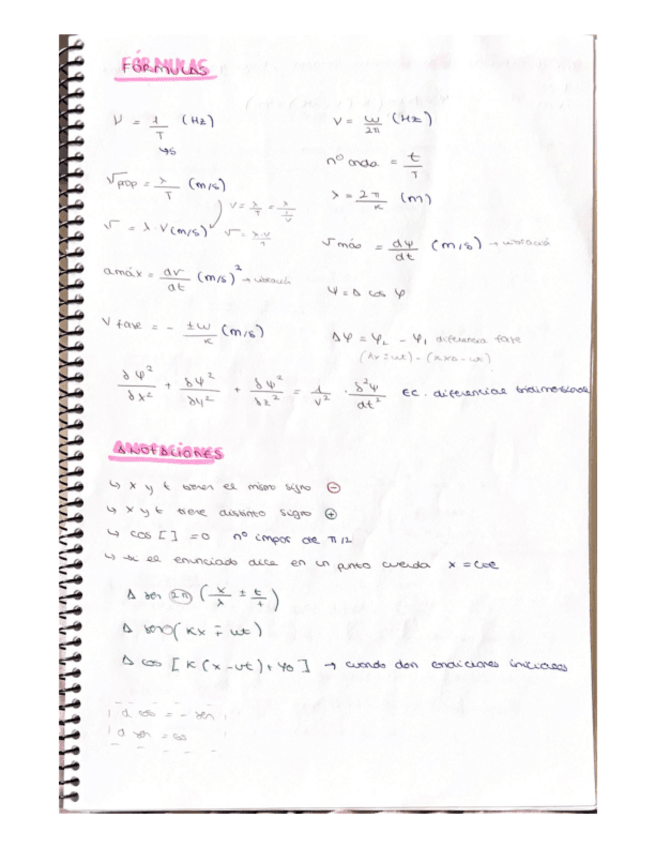 FÓRMULAS
ν = 1/T (Hz)
↳s
ν = ω/2π (Hz)
nº onda = t/T
Vprop = λ/T (m/s)
λ = 2π/K (m)
V = λ·ν (m/s)
V = λ/T = λ/(1/ν)
V = λ·ν/1
Vmáx = dψ/dt (m/s) →
amáx = dv/dt (m/s)² →
Ψ = A cos φ
V fase = - ±ω/K (m/s)
Δφ = φ₂ - φ₁ diferencia fase
δψ²/δx² + δψ²/δy² + δψ²/δz² = 1/v² · δ²ψ/dt² EC. diferencial tridimensional
ANOTACIONES
↳ x y t tienen el mismo signo ⊖
↳ x y t tiene distinto signo ⊕
↳ cos [ ] = 0 nº impar de π/2
↳ si el enunciado dice en un punto cuerda x = cte
A sen 2π (x/λ ± t/T)
A sen (Kx ∓ ωt)
A cos [K(x-vt) + φ0] → cuando dan condiciones iniciales
d cos = - sen
d sen = cos